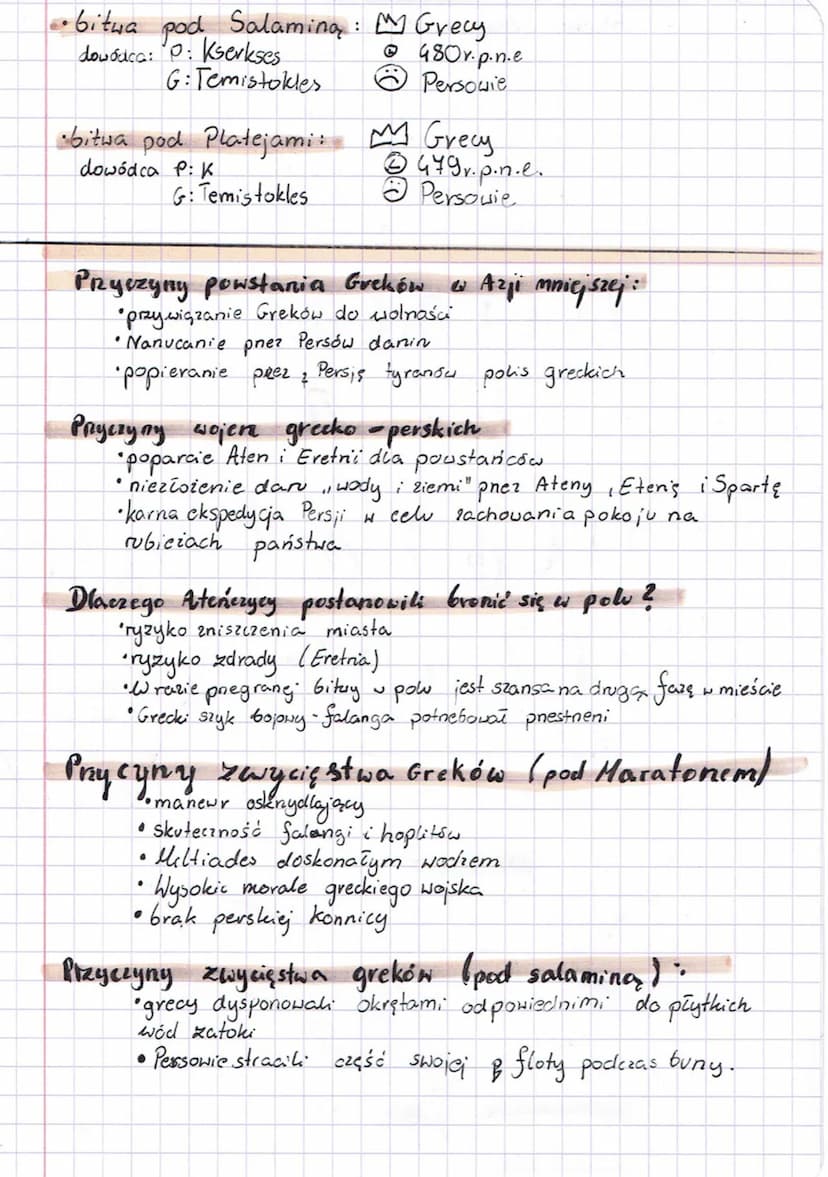 • bitwa pod Salaminą : Grecy
dowódca: P: Kserkses 480r.p.n.e
G: Temistokles Persowie
• bitwa pod Platejami: Grecy
dowódca P: K 479r.p.n.e.
G: Temistokles Persowie
Przyczyny powstania Greków w Azji mniejszej:
• przywiązanie Greków do wolności
• Narzucanie przez Persów danin
• popieranie przez Persję tyranów polis greckich
Przyczyny wojen grecko - perskich
• poparcie Aten i Eretrii dla powstańców
• niezłożenie daru „wody i ziemi" przez Ateny, Etenię i Spartę
• karna ekspedycja Persji w celu zachowania pokoju na
rubieżach państwa
Dlaczego Ateńczycy postanowili bronić się w polu?
• ryzyko zniszczenia miasta
• ryzyko zdrady (Eretria)
• W razie przegranej bitwy w polu jest szansa na drugą fazę w mieście
• Grecki szyk bojowy - falanga potrzebował przestrzeni
Przycyny zwycięstwa Greków (pod Maratonem)
• manewr oskrzydlający
• skuteczność falangi i hoplitów
• Miltiades doskonałym wodzem
• Wysokie morale greckiego wojska
• brak perskiej konnicy
Przyczyny zwycięstwa greków (pod salaminą) :
• grecy dysponowali okrętami odpowiednimi do płytkich
wód zatoki
• Persowie stracili część swojej floty podczas burzy.